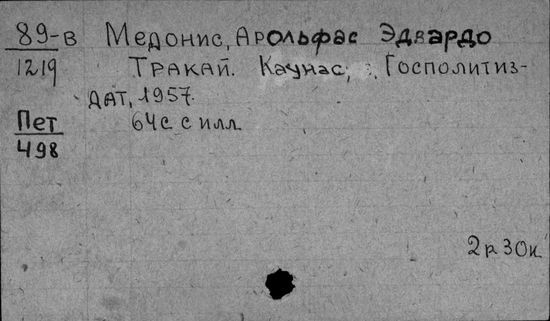 89-в Медонис, Арольфас Эдвардо
1219 Тракай. Каунас, Госполитиз-
дат, 1957.
Пет 64с. с илл.
498
2р 30к